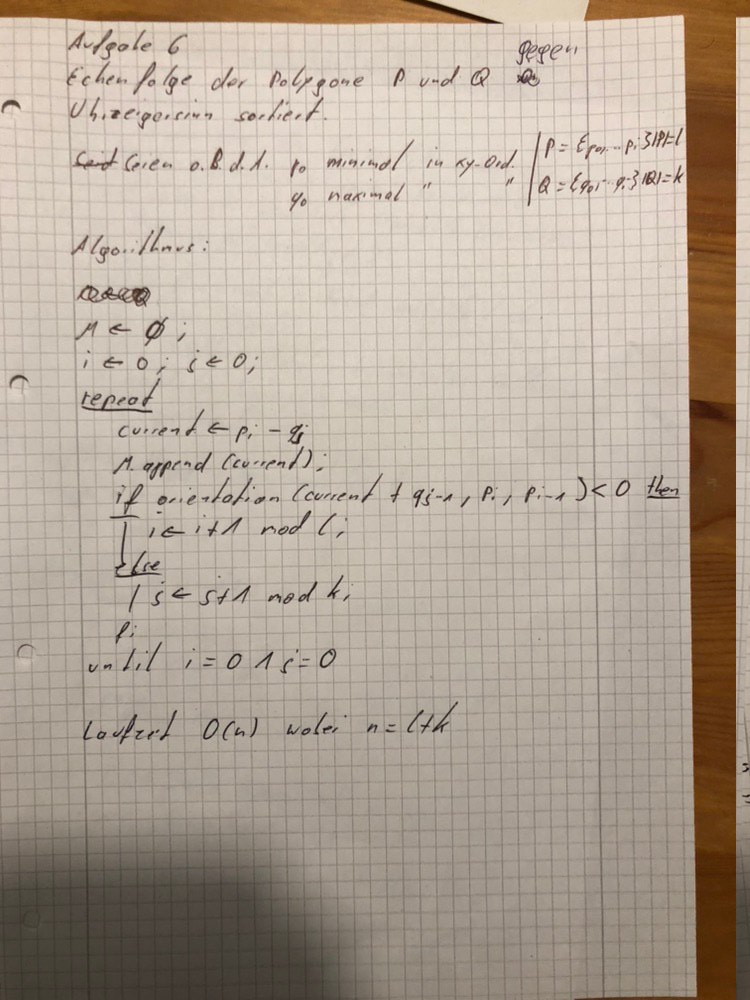 Aufgabe 6
Eckenfolge der Polygone P und Q gegen
Uhrzeigersinn sortiert.
Seien o.B.d.A. p₀ minimal in xy-Ord. | P = {p₀, ... pᵢ} |P|=l
q₀ maximal " " | Q = {q₀, ... qⱼ} |Q|=k
Algorithmus:
M ← ∅;
i ← 0; j ← 0;
repeat
current ← pᵢ - qⱼ
M.append(current);
if orientation(current + qⱼ₋₁, pᵢ, pᵢ₋₁) < 0 then
i ← i+1 mod l;
else
j ← j+1 mod k;
fi
until i = 0 ∧ j = 0
Laufzeit O(n) wobei n = l+k